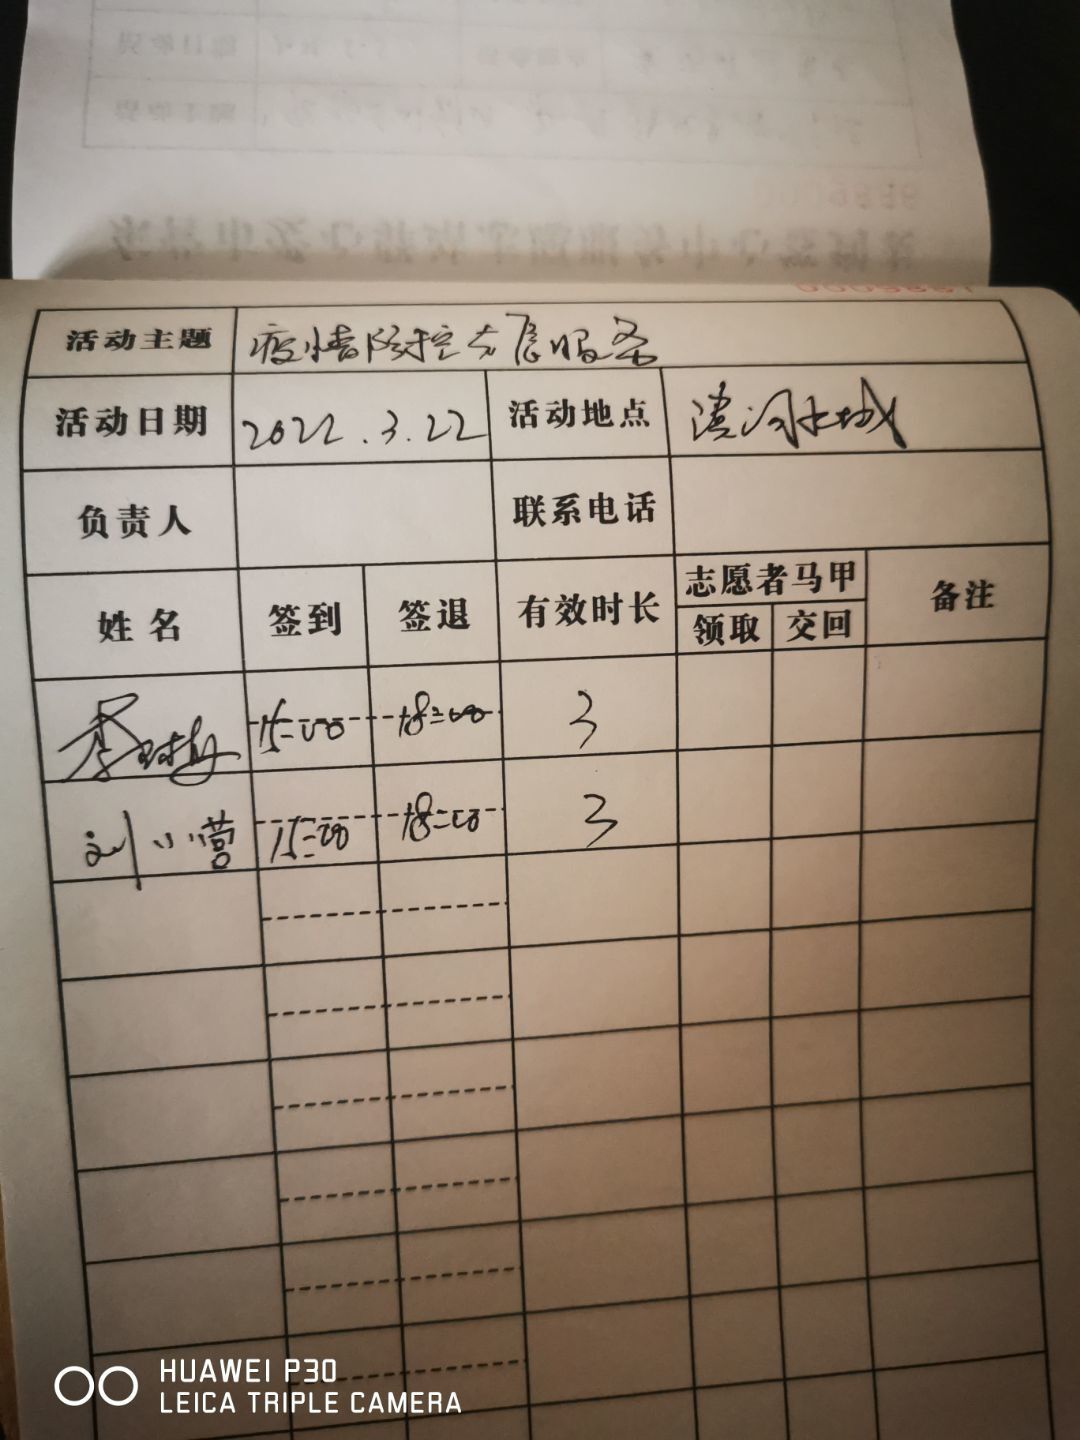 活动主题 疫情防控志愿服务
活动日期 2022.3.22 活动地点 清河水城
负责人 联系电话
姓名 签到 签退 有效时长 志愿者马甲 备注
领取 交回
15:00 18:00 3
刘小营 15:00 18:00 3
HUAWEI P30
LEICA TRIPLE CAMERA